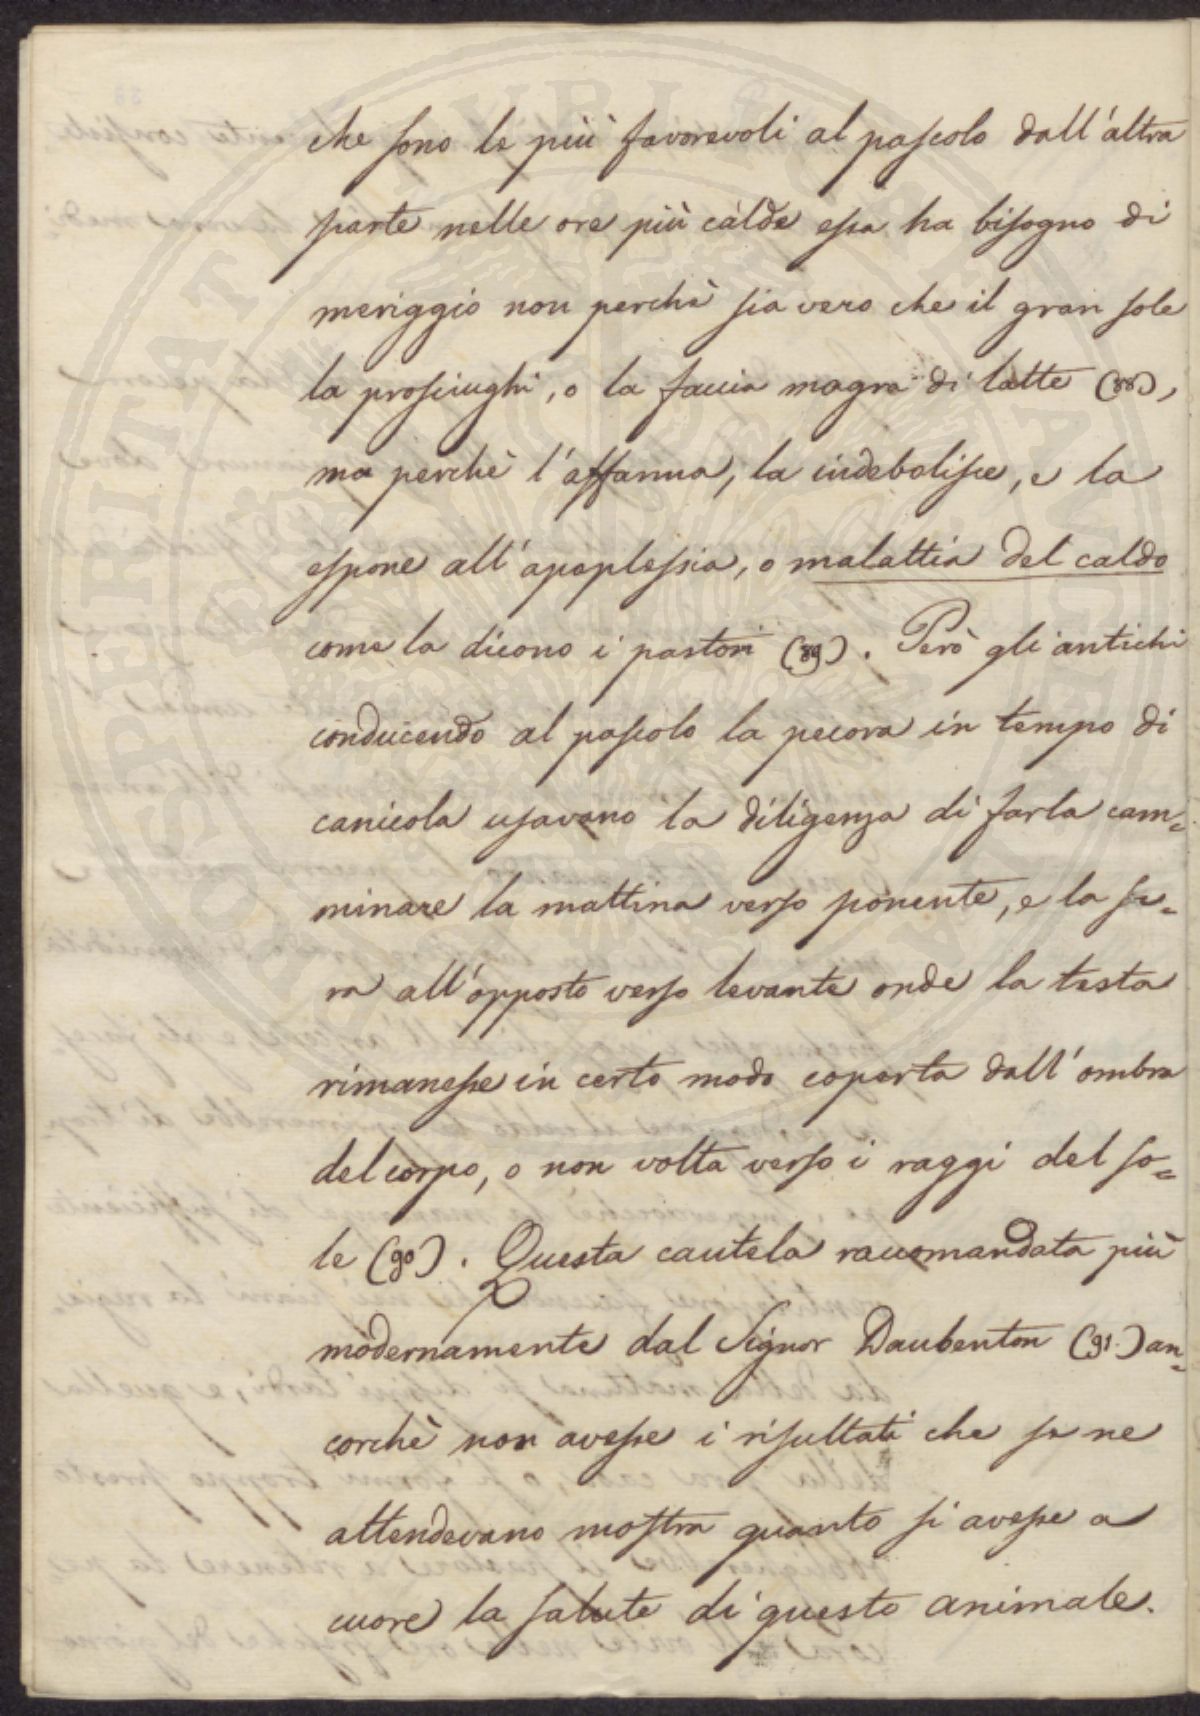 che sono le più favorevoli al pascolo dall'altra
parte nelle ore più calde essa ha bisogno di
meriggio non perchè sia vero che il gran sole
la prosciughi, o la faccia magra di latte (88),
ma perchè l'affanna, la indebolisce, e la
espone all'apoplessia, o malattia del caldo
come la dicono i pastori (89). Però gli antichi
conducendo al pascolo la pecora in tempo di
canicola usavano la diligenza di farla cam=
minare la mattina verso ponente, e la se=
ra all'opposto verso levante onde la testa
rimanesse in certo modo coperta dall'ombra
del corpo, o non volta verso i raggi del so=
le (90). Questa cautela raccomandata più
modernamente dal Signor Daubenton (91.) an=
corchè non avesse i risultati che se ne
attendevano mostra quanto si avesse a
cuore la salute di questo animale.